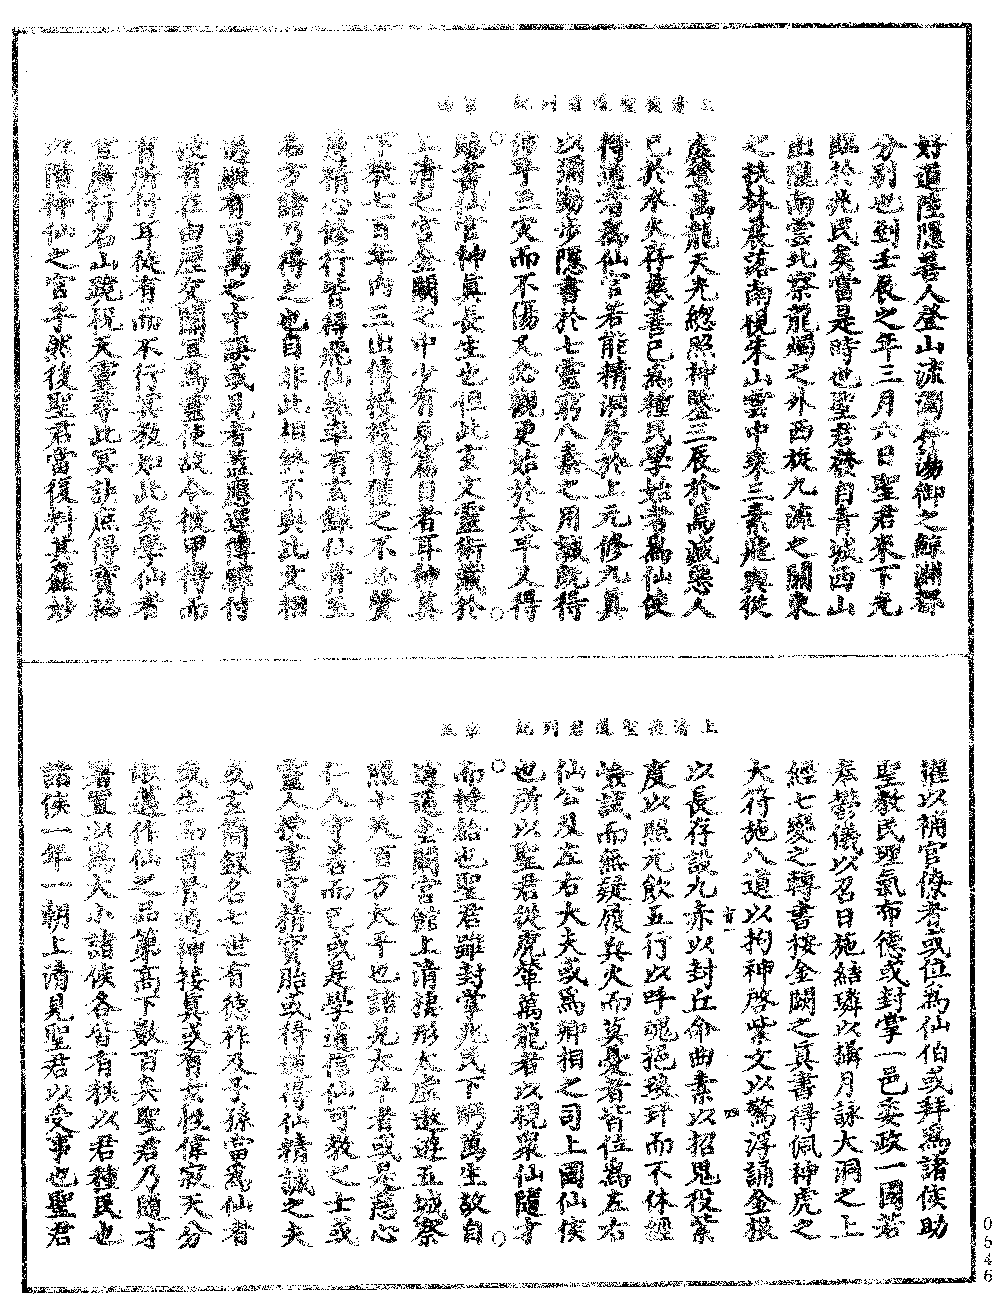 上清後聖道君列紀　第四
好道陸隱善人登山流濁奔蕩御之鯨淵都
分別也到壬辰之年三月六日聖君來下光
臨於兆民矣當是時也聖君發自青城西山
出隱南雲北察龍燭之外西旋九流之關東
之扶林晨落南悅朱山雲中乘三素飛輿從
虛輦萬龍天光總照神鑒三辰於是滅惡人
已於水火存慈善已為種民學始者為仙使
得道者為仙官若能精洞房於上元修九真
以彌勤步隱書於七靈窮八素之用誠既得
沛耳三災而不傷又免觀更始於太平又得
賜書仙官神真長生也但此玄文靈術藏於
上清之宮金闕之中少有見篇目者耳神真
下教七百年內三出傳授授傳僅之不必賢
愚精心修行皆得飛仙然率有玄錄仙骨至
名方諸乃得之也自非此相終不與此文相
遇願有百萬之中誤或見者蓋應運傳驗付
受有在由歷交關宜為靈使故令彼甲得而
有所付耳徒有而不行其教如此矣學仙者
宜廣行名山疏稅天靈尋此冥訣庶得寶秘
以階神仙之宮乎然後聖君當復料其龐妙
上清後聖道君列紀　第五
擢以補官僚者或位為仙伯或拜為諸侯助
聖教民理氣布德或封掌一邑委政一國若
奏鬱儀以召日施結璘以攝月詠大洞之上
經七變之轉書按金闕之真書得佩神虎之
大符施八道以拘神啓紫文以驚浮誦金根
以長存設九赤以封丘命曲素以招鬼役紫
度以照光飲五行以呼魂挹琅玕而不休經
嶮試而無疑履兵火而莫憂者皆位為左右
仙公及左右大夫或為卿相之司上國仙侯
也所以聖君從虎輦萬龍者以視眾仙隨才
而撞給也聖君雖封掌兆民下矚萬生故自
逍遙金闕宮館上清棲形太虛遨遊五城察
照十天百方太平也諸見太平者或是慈心
仁人守善而已或是學道信仙可教之士或
靈人授書守精寶胎或得道得仙精誠之夫
或玄簡錄名七世有德祚及子孫當為仙者
或生而首骨為神接真或有玄性偉寂天分
乘邁作仙之品第高下數百矣聖君乃隨才
署置以為大小諸侯各皆有秩以君種民也
諸侯一年一朝上清見聖君以受事也聖君
0546